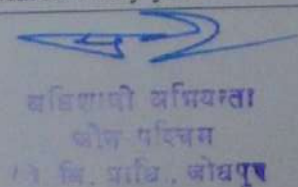 अधिशाषी अभियन्ता
जोन पश्चिम
जो. वि. प्राधि., जोधपुर